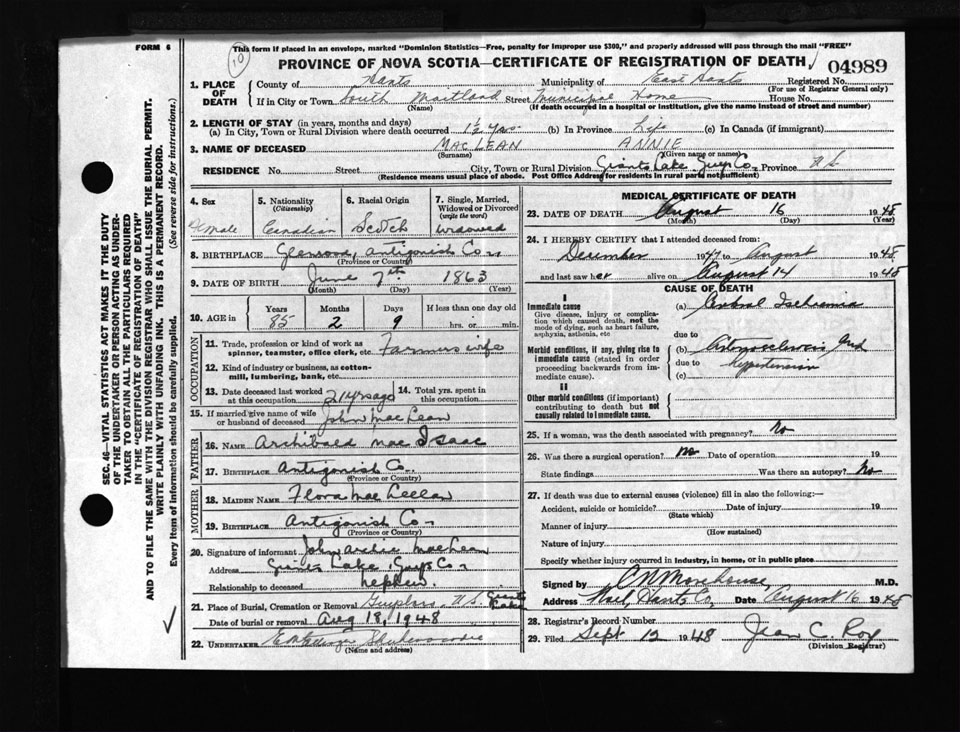 FORM 6
This form if placed in an envelope, marked "Dominion Statistics—Free, penalty for improper use $300," and properly addressed will pass through the mail "FREE"
10
PROVINCE OF NOVA SCOTIA—CERTIFICATE OF REGISTRATION OF DEATH
04989
1. PLACE OF DEATH
County of Hants Municipality of East Hants Registered No.
(For use of Registrar General only)
If in City or Town South Maitland Street Municipal Home House No.
(Name) (If death occurred in a hospital or institution, give the name instead of street and number)
2. LENGTH OF STAY (in years, months and days)
(a) In City, Town or Rural Division where death occurred 1½ yrs (b) In Province Life (c) In Canada (if immigrant)
3. NAME OF DECEASED MACLEAN ANNIE
(Surname) (Given name or names)
RESIDENCE No. Street City, Town or Rural Division Giants Lake, Guys Co. Province N S
(Residence means usual place of abode. Post Office Address for residents in rural parts not sufficient)
4. Sex Female
5. Nationality (Citizenship) Canadian
6. Racial Origin Scotch
7. Single, Married, Widowed or Divorced (write the word) Widowed
8. BIRTHPLACE Antigonish Co.
(Province or Country)
9. DATE OF BIRTH June 7th 1863
(Month) (Day) (Year)
10. AGE in Years Months Days If less than one day old
85 2 9 hrs. or min.
OCCUPATION
11. Trade, profession or kind of work as spinner, teamster, office clerk, etc. Farmers wife
12. Kind of industry or business, as cotton-mill, lumbering, bank, etc.
13. Date deceased last worked at this occupation 2 yrs ago
14. Total yrs. spent in this occupation
15. If married give name of wife or husband of deceased John MacLean
FATHER
16. NAME Archibald Mac Isaac
17. BIRTHPLACE Antigonish Co.
(Province or Country)
MOTHER
18. MAIDEN NAME Flora Mac Lellan
19. BIRTHPLACE Antigonish Co.
(Province or Country)
20. Signature of informant John Archie MacLean
Address Giants Lake, Guys Co.
Relationship to deceased nephew.
21. Place of Burial, Cremation or Removal N S Giants Lake
Date of burial or removal Aug 18, 1948
22. UNDERTAKER Shubenacadie
(Name and address)
MEDICAL CERTIFICATE OF DEATH
23. DATE OF DEATH August 16 1948
(Month) (Day)
24. I HEREBY CERTIFY that I attended deceased from:
December 1947 to August 1948
and last saw her alive on August 14 1948
CAUSE OF DEATH
I
Immediate cause
Give disease, injury or complication which caused death, not the mode of dying, such as heart failure, asphyxia, asthenia, etc
(a) Cerebral Ischemia
due to
Morbid conditions, if any, giving rise to immediate cause (stated in order proceeding backwards from immediate cause).
(b) Arteriosclerosis and
due to hypertension
(c)
II
Other morbid conditions (if important) contributing to death but not causally related to immediate cause.
25. If a woman, was the death associated with pregnancy? No
26. Was there a surgical operation? No Date of operation 19
State findings Was there an autopsy? No
27. If death was due to external causes (violence) fill in also the following:—
Accident, suicide or homicide? Date of injury 19
(State which)
Manner of injury
(How sustained)
Nature of injury
Specify whether injury occurred in industry, in home, or in public place
Signed by C N Morehouse, M.D.
Address Noel, Hants Co, Date August 16 1948
28. Registrar's Record Number
29. Filed Sept 12 1948 Jean C. Roy
(Division Registrar)
SEC. 46—VITAL STATISTICS ACT MAKES IT THE DUTY
OF THE UNDERTAKER OR PERSON ACTING AS UNDER-
TAKER TO OBTAIN ALL THE PARTICULARS REQUIRED
IN THE "CERTIFICATE OF REGISTRATION OF DEATH"
AND TO FILE THE SAME WITH THE DIVISION REGISTRAR WHO SHALL ISSUE THE BURIAL PERMIT.
WRITE PLAINLY WITH UNFADING INK. THIS IS A PERMANENT RECORD.
Every item of information should be carefully supplied. (See reverse side for instructions.)